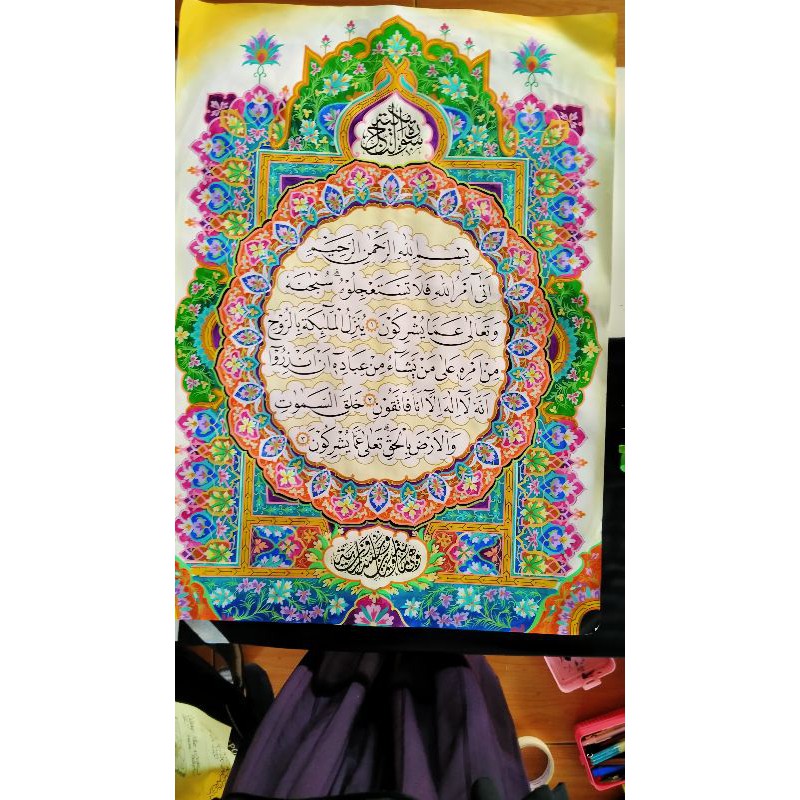 بِسْمِ اللهِ الرَّحْمٰنِ الرَّحِيْمِ
اَتٰىٓ اَمْرُ اللهِ فَلَا تَسْتَعْجِلُوْهُ ۗ سُبْحٰنَهٗ
وَتَعٰلٰى عَمَّا يُشْرِكُوْنَ ١ يُنَزِّلُ الْمَلٰۤىِٕكَةَ بِالرُّوْحِ
مِنْ اَمْرِهٖ عَلٰى مَنْ يَّشَاۤءُ مِنْ عِبَادِهٖٓ اَنْ اَنْذِرُوْٓا
اَنَّهٗ لَآ اِلٰهَ اِلَّآ اَنَا۠ فَاتَّقُوْنِ ٢ خَلَقَ السَّمٰوٰتِ
وَالْاَرْضَ بِالْحَقِّ ۗ تَعٰلٰى عَمَّا يُشْرِكُوْنَ ٣